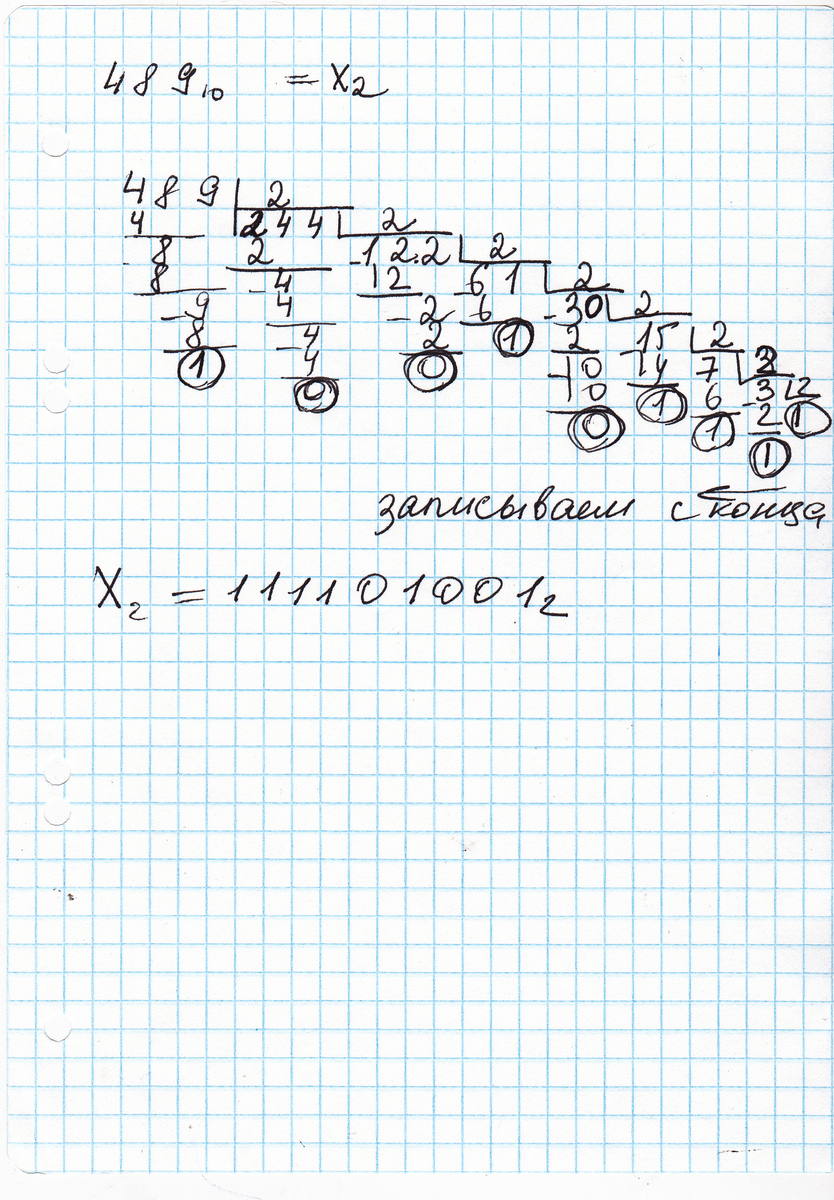 489₁₀ = X₂
489 2
4 244 2
- 8 2 -122 2
8 -4 12 -61 2
-9 4 -2 6 -30 2
8 -4 2 1 2 -15 2
1 4 0 -10 14 7 2
0 10 1 6 -3 2
0 1 2 1
1
записываем с конца
X₂ = 111101001₂